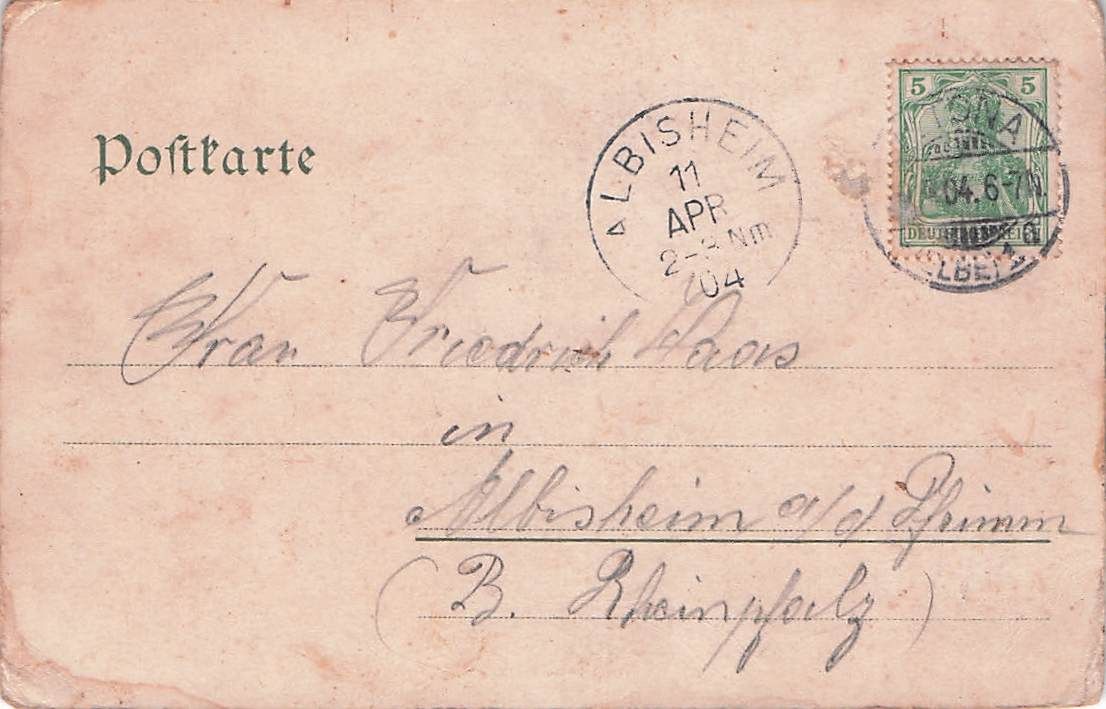 Postkarte
ALBISHEIM
11
APR
2-3 Nm
04
5 5
04. 6-7 N.
DEUTSCHES REICH
Frau Friedrich
in
Albisheim a/d Pfrimm
(B. Rheinpfalz)